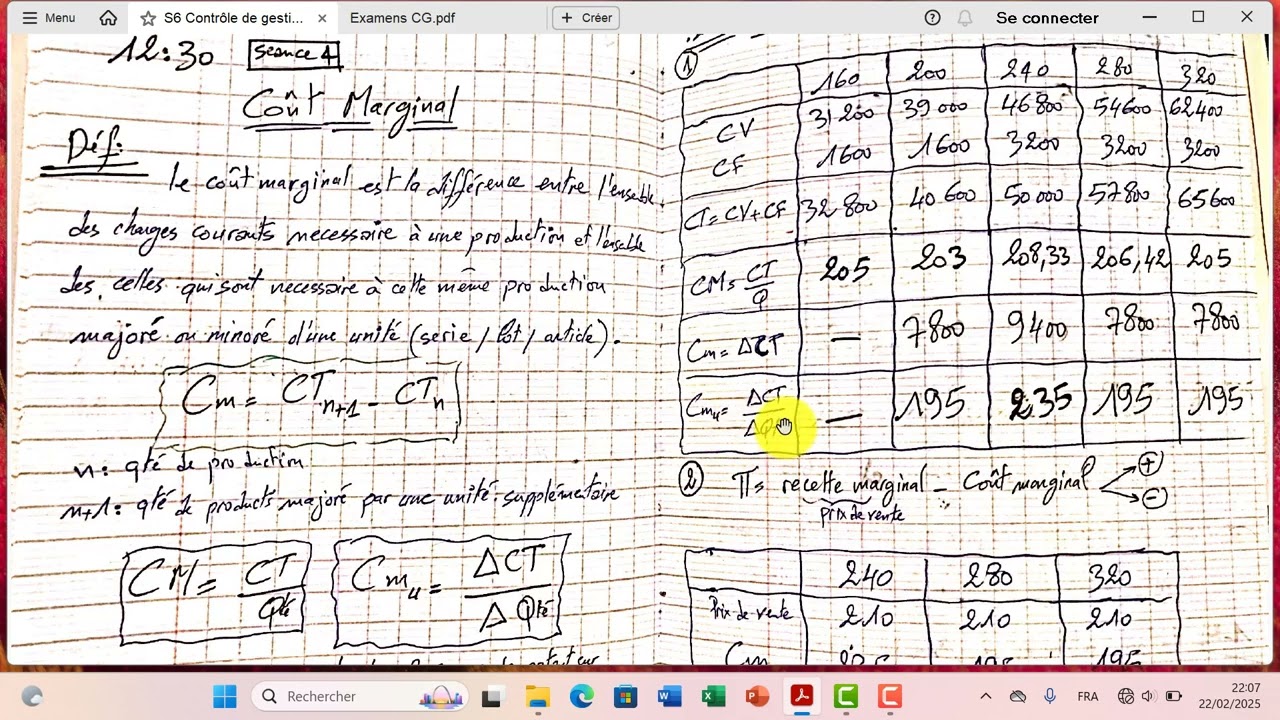 Menu
S6 Contrôle de gesti...
Examens CG.pdf
Créer
Se connecter
12:30 séance 4
Coût Marginal
Déf:
le coût marginal est la différence entre l'ensable
des charges courants necessaire à une production et l'ensable
des celles qui sont necessaire à cette même production
majoré ou minoré d'une unité (serie / lot / article).
Cm = CTn+1 - CTn
n : qté de production
n+1 : qté de products majoré par une unité supplémentaire
CM = CT / Qté
Cmu = ΔCT / ΔQté
①
160 200 240 280 320
CV 31200 39000 46800 54600 62400
CF 1600 1600 3200 3200 3200
CT = CV + CF 32800 40600 50000 57800 65600
CM = CT / Q 205 203 208,33 206,42 205
Cm = ΔCT — 7800 9400 7800 7800
Cmu = ΔCT / ΔQ — 195 235 195 195
② Π = recette marginal - Coût marginal + -
prix de vente
240 280 320
Prix de vente 210 210 210
Cm 195 195
Rechercher
FRA
22:07
22/02/2025